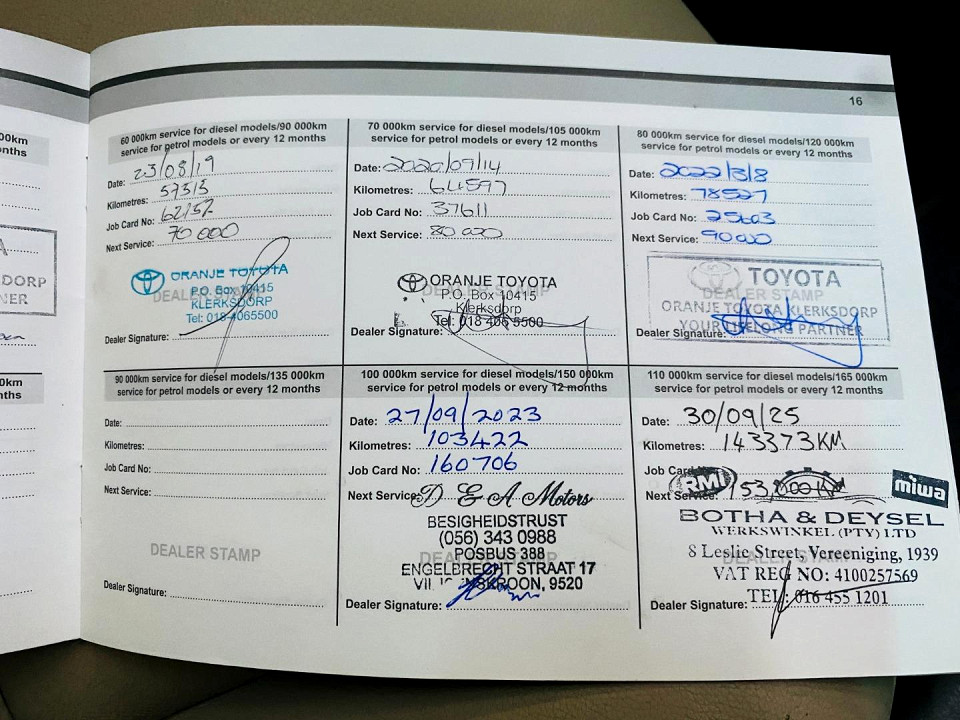 16
00km
onths
60 000km service for diesel models/90 000km
service for petrol models or every 12 months
Date: 23/08/19
Kilometres: 57313
Job Card No: 62152
Next Service: 70 000
ORANJE TOYOTA
P.O. Box 10415
DEALER STAMP
KLERKSDORP
Tel: 018 4065500
Dealer Signature:
70 000km service for diesel models/105 000km
service for petrol models or every 12 months
Date: 2020/09/14
Kilometres: 64597
Job Card No: 37611
Next Service: 80 000
ORANJE TOYOTA
P.O. Box 10415
DEALER STAMP
Klerksdorp
Tel: 018 406 5500
Dealer Signature:
80 000km service for diesel models/120 000km
service for petrol models or every 12 months
Date: 2022/3/8
Kilometres: 78527
Job Card No: 25603
Next Service: 90 000
TOYOTA
DEALER STAMP
ORANJE TOYOTA KLERKSDORP
YOUR LIFELONG PARTNER
Dealer Signature:
A
SDORP
NER
0km
ths
90 000km service for diesel models/135 000km
service for petrol models or every 12 months
Date:
Kilometres:
Job Card No:
Next Service:
DEALER STAMP
Dealer Signature:
100 000km service for diesel models/150 000km
service for petrol models or every 12 months
Date: 27/09/2023
Kilometres: 103422
Job Card No: 160706
Next Service:
D E A Motors
BESIGHEIDSTRUST
(056) 343 0988
POSBUS 388
DEALER STAMP
ENGELBRECHT STRAAT 17
9520
Dealer Signature:
110 000km service for diesel models/165 000km
service for petrol models or every 12 months
Date: 30/09/25
Kilometres: 143373KM
Job Card
Next Service: 153,000KM
RMI
miwa
BOTHA & DEYSEL
WERKSWINKEL (PTY) LTD
8 Leslie Street, Vereeniging, 1939
DEALER STAMP
VAT REG NO: 4100257569
TEL: 016 455 1201
Dealer Signature: